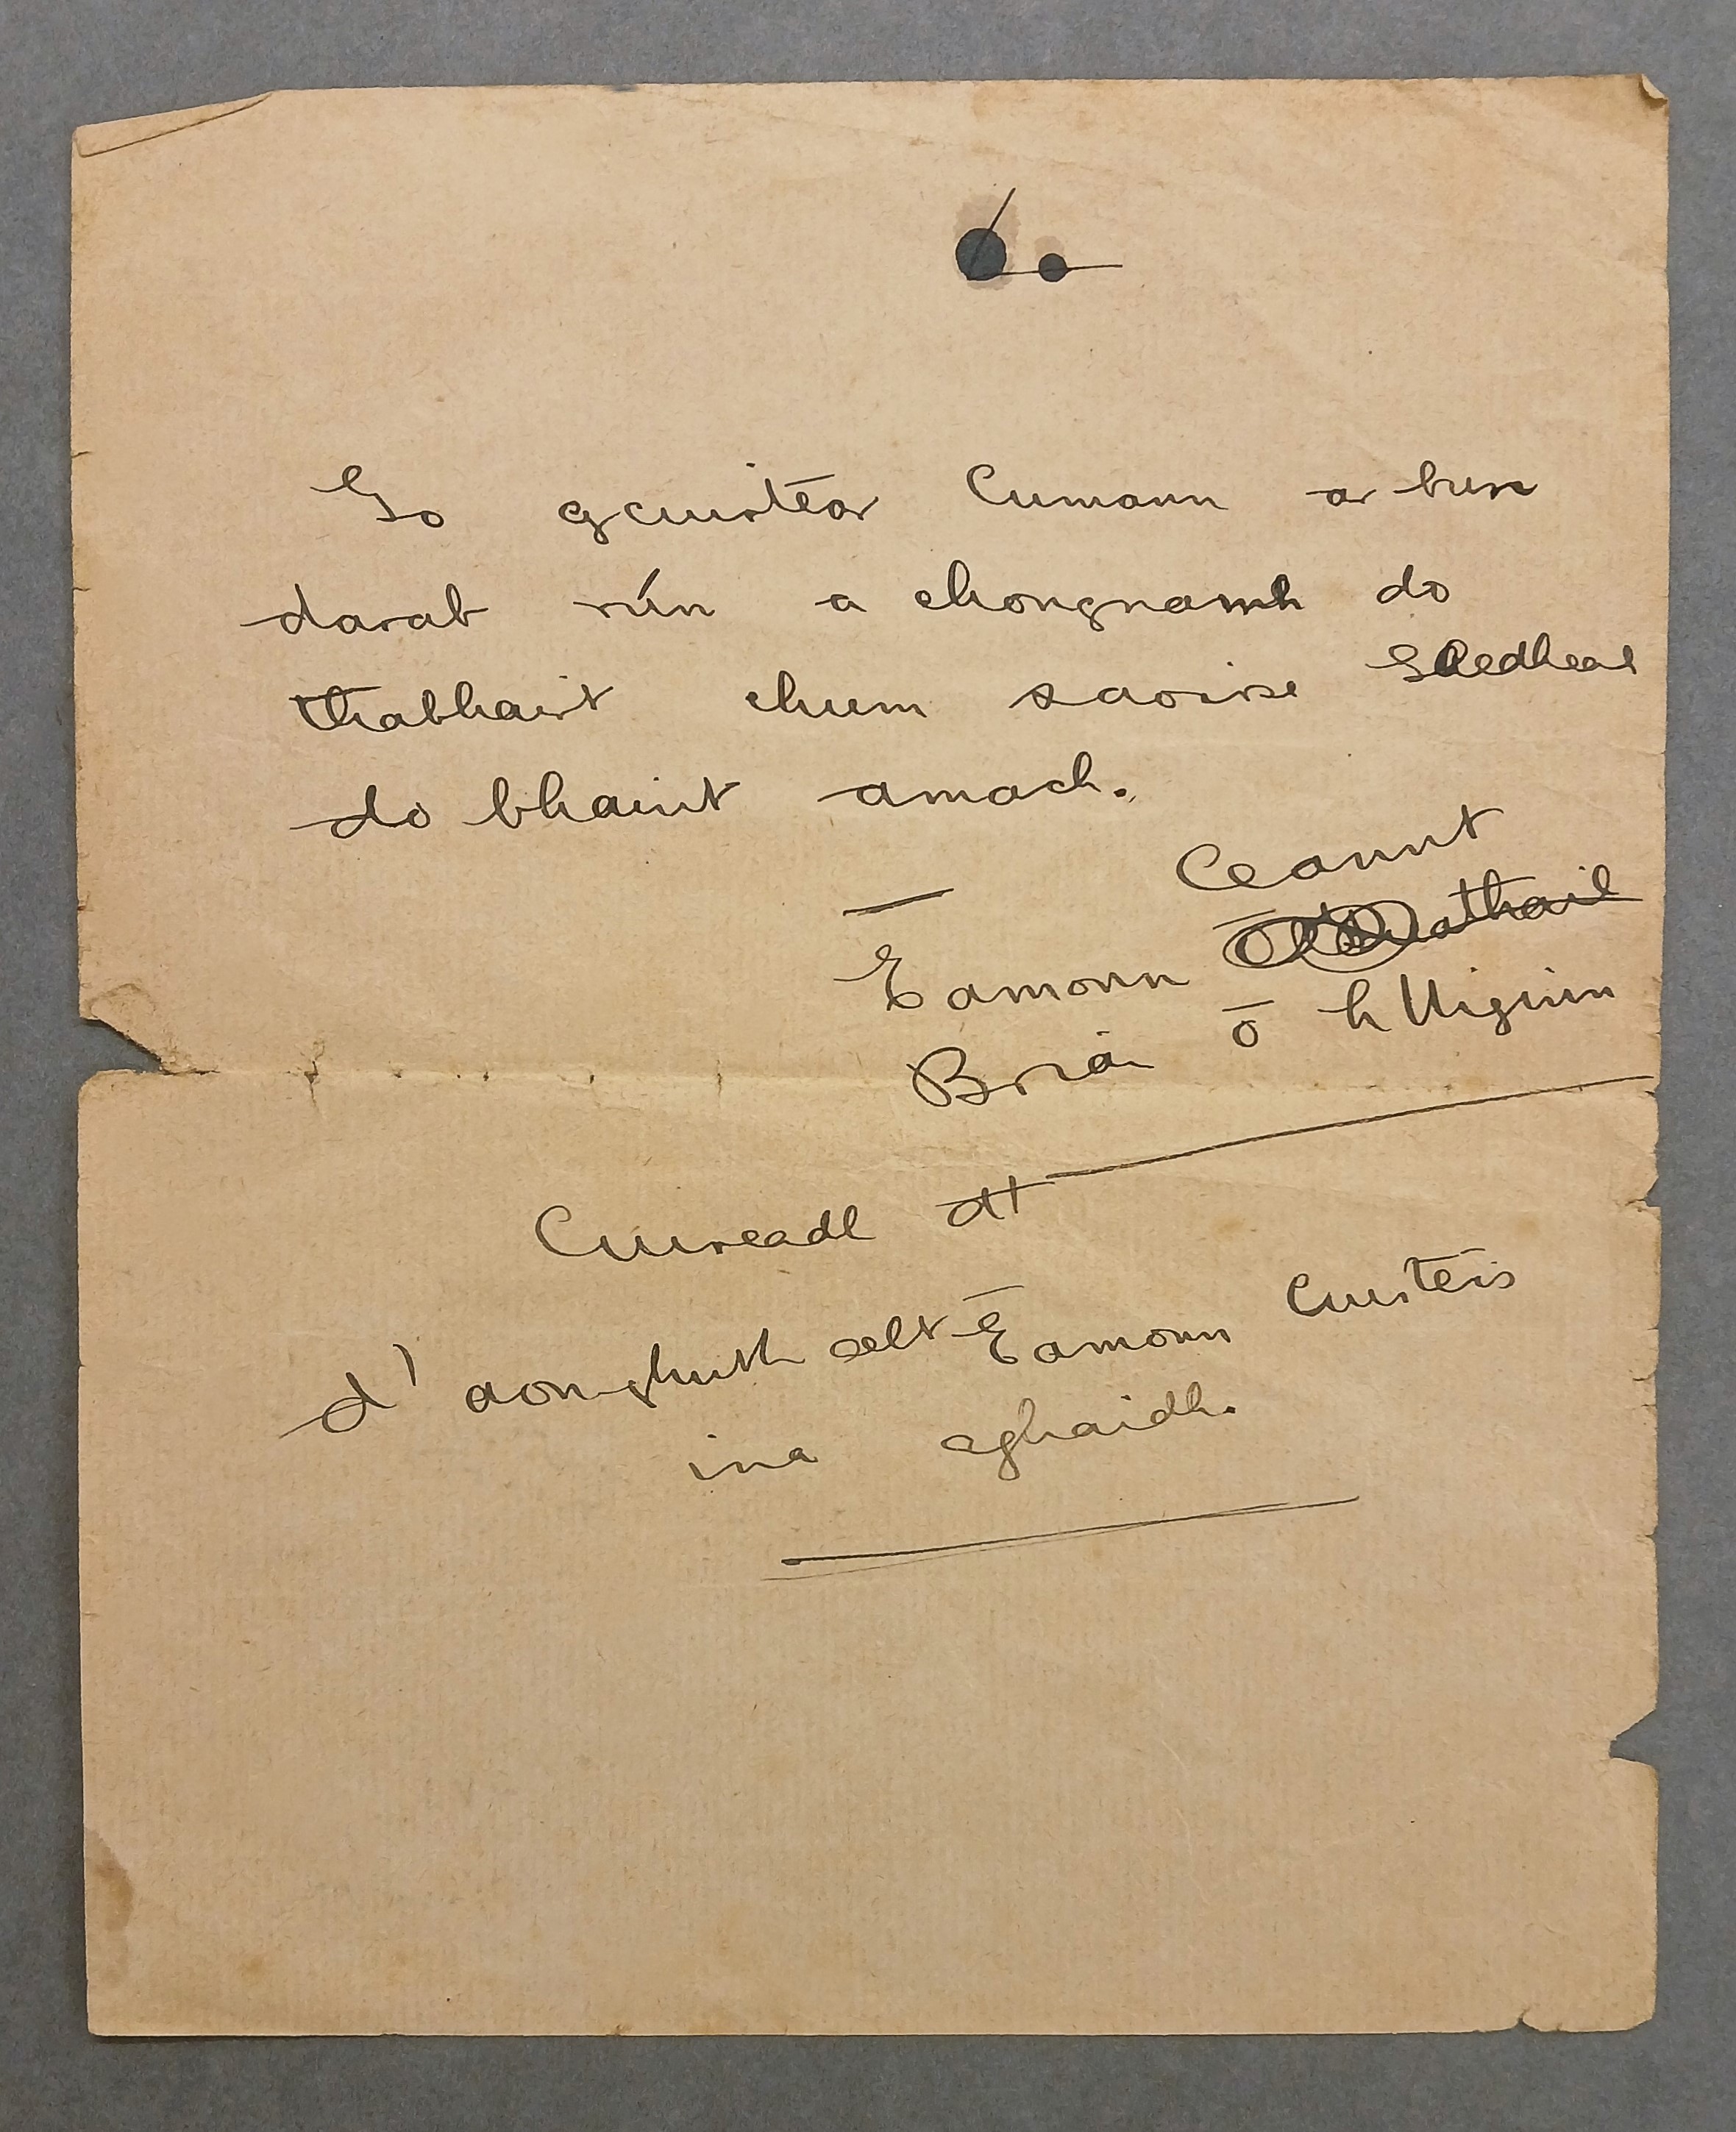 Go gcuirtear Cumann ar bun
darab rún a chongnamh do
thabhairt chum saoirse Gaedheal
do bhaint amach.
Ceannt
Éamonn
Brian ō h Uiginn
Cuireadh
d' aonghuth acht Éamonn Cuirtéis
ina aghaidh.